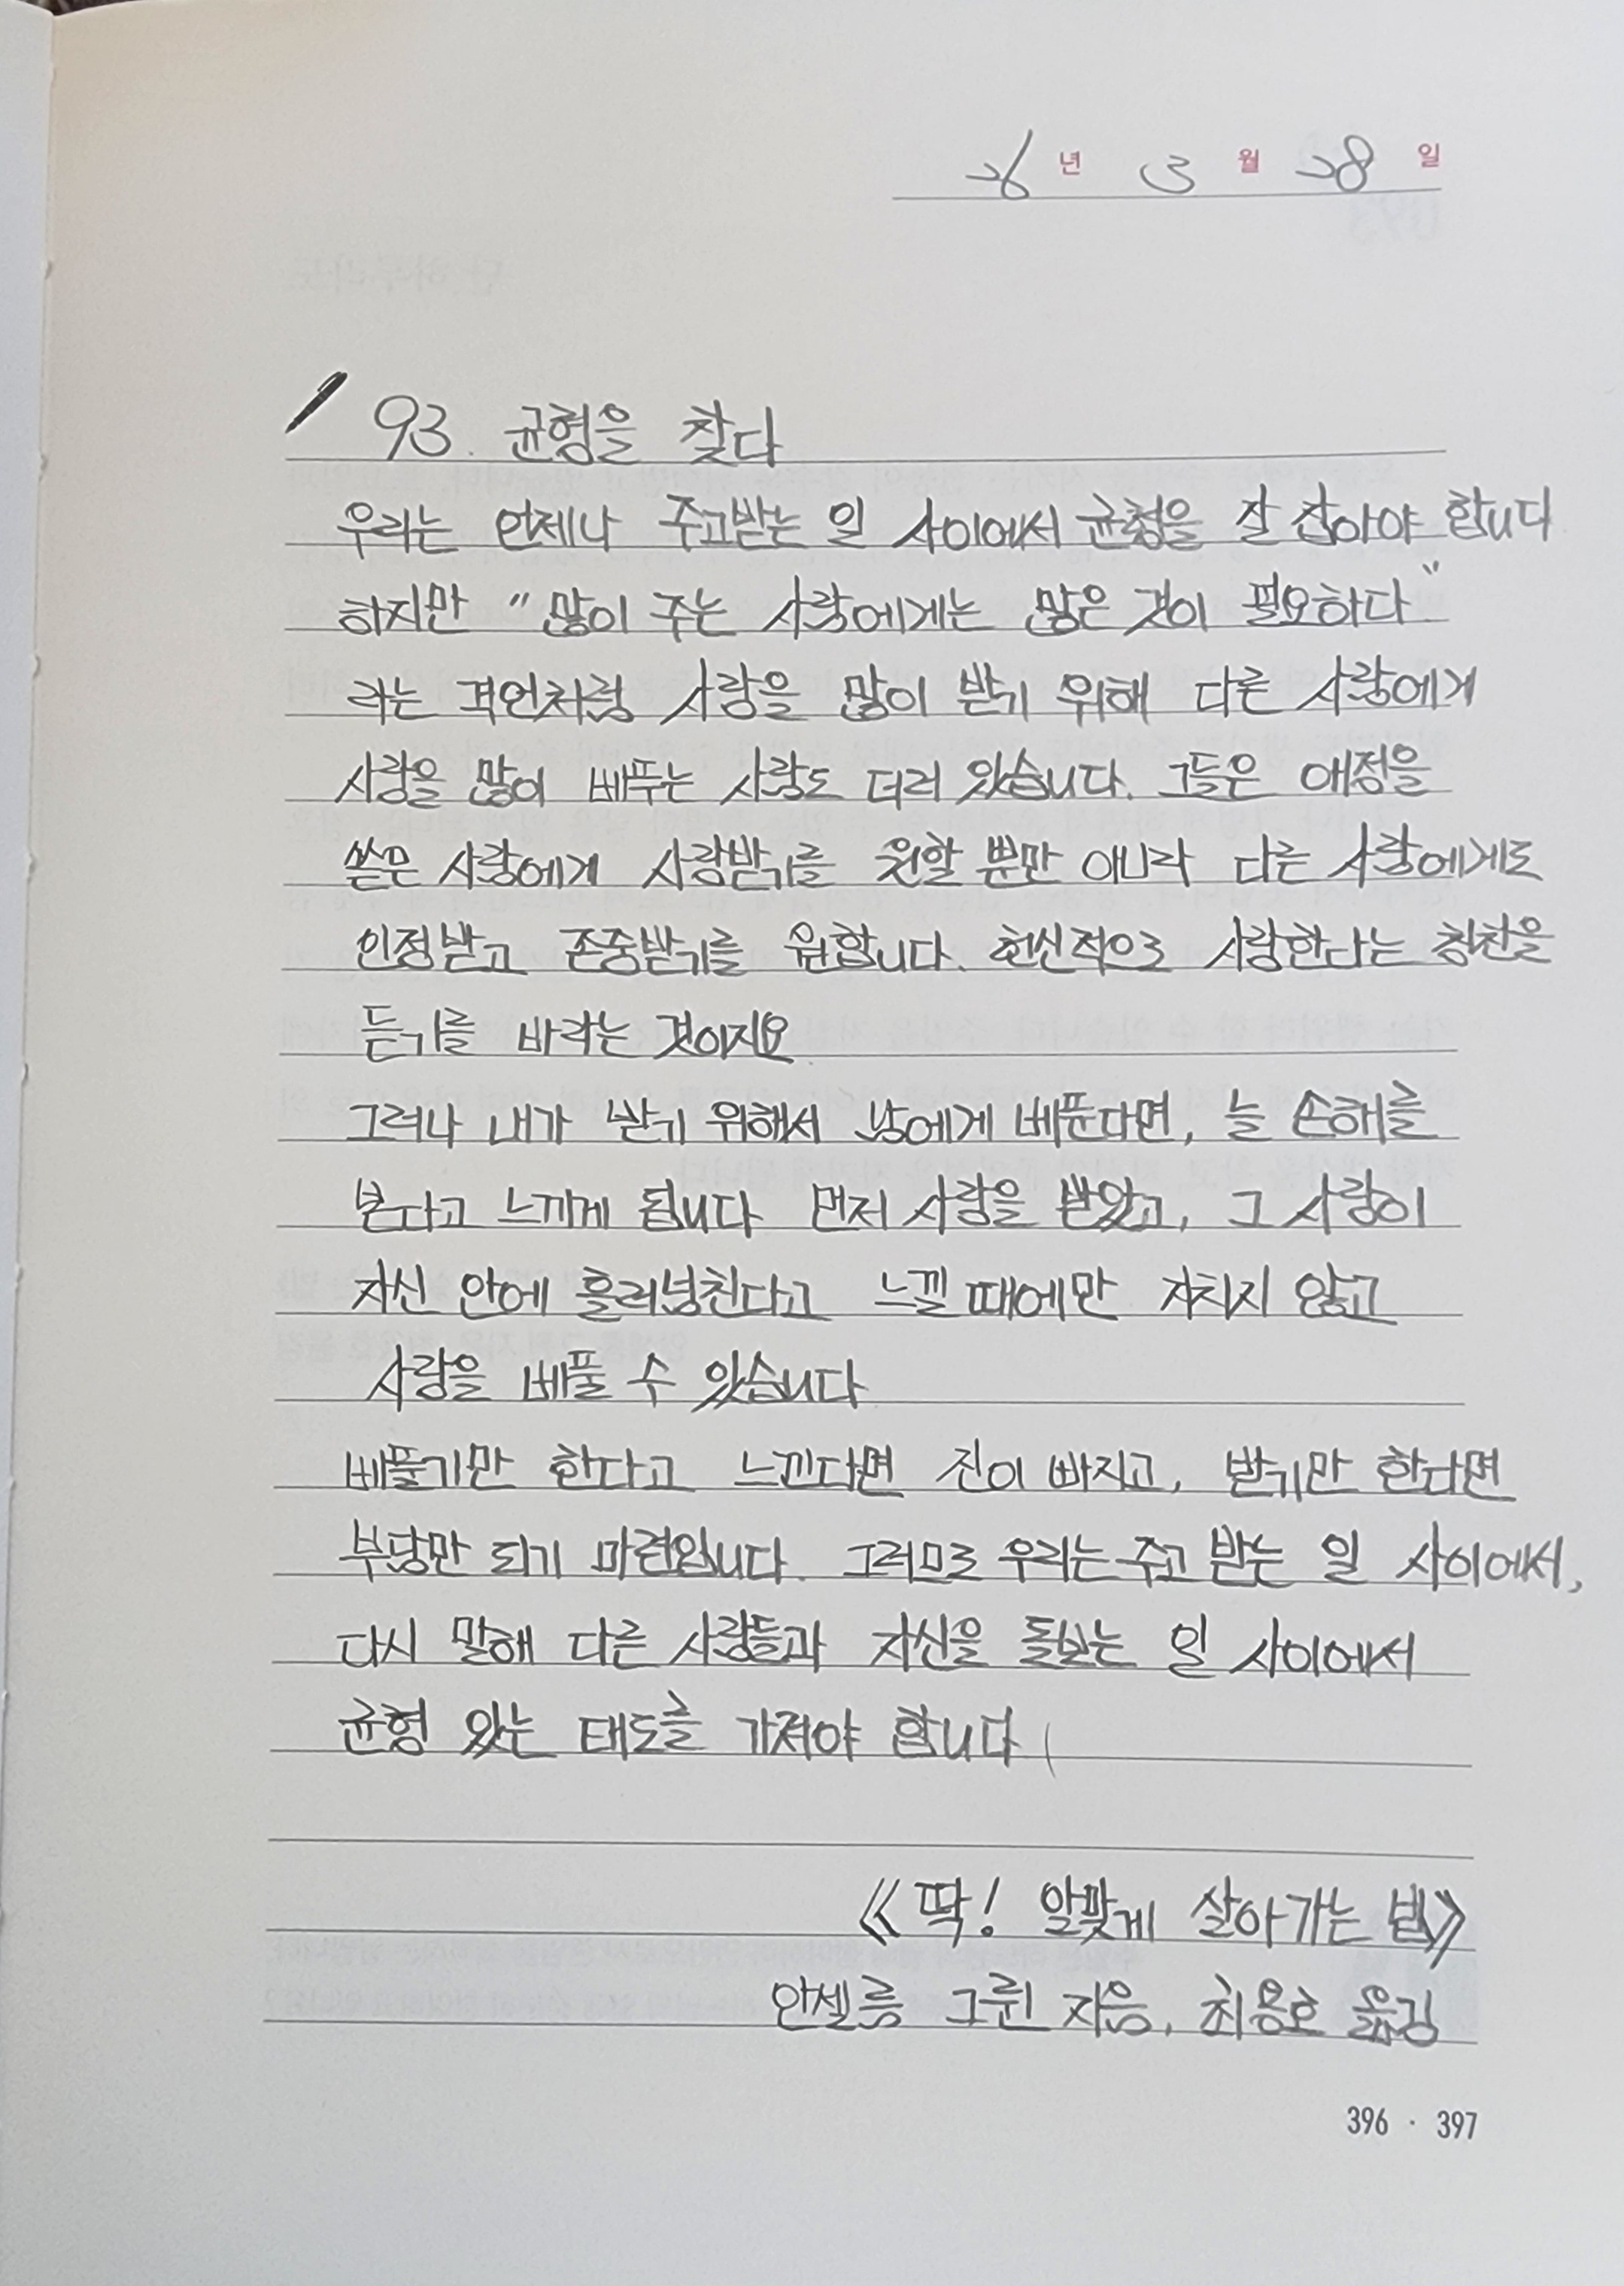 26년 3월 28일
93. 균형을 찾다
우리는 언제나 주고받는 일 사이에서 균형을 잘 잡아야 합니다
하지만 "많이 주는 사람에게는 많은 것이 필요하다"
라는 격언처럼 사랑을 많이 받기 위해 다른 사람에게
사랑을 많이 베푸는 사람도 더러 있습니다. 그들은 애정을
쏟은 사람에게 사랑받기를 원할 뿐만 아니라 다른 사람에게도
인정받고 존중받기를 원합니다. 헌신적으로 사랑한다는 칭찬을
듣기를 바라는 것이지요
그러나 내가 받기 위해서 남에게 베푼다면, 늘 손해를
본다고 느끼게 됩니다 먼저 사랑을 받았고, 그 사랑이
자신 안에 흘러넘친다고 느낄 때에만 지치지 않고
사랑을 베풀 수 있습니다
베풀기만 한다고 느낀다면 진이 빠지고, 받기만 한다면
부담만 되기 마련입니다. 그러므로 우리는 주고 받는 일 사이에서,
다시 말해 다른 사람들과 자신을 돌보는 일 사이에서
균형 있는 태도를 가져야 합니다
《딱! 알맞게 살아가는 법》
안셀름 그륀 지음, 최용호 옮김
396 · 397